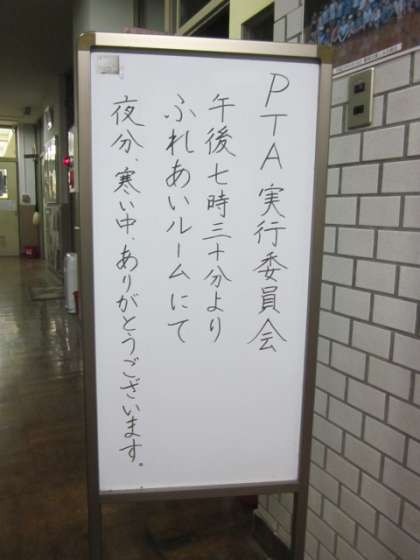 PTA実行委員会
午後七時三十分より
ふれあいルームにて
夜分、寒い中、ありがとうございます。